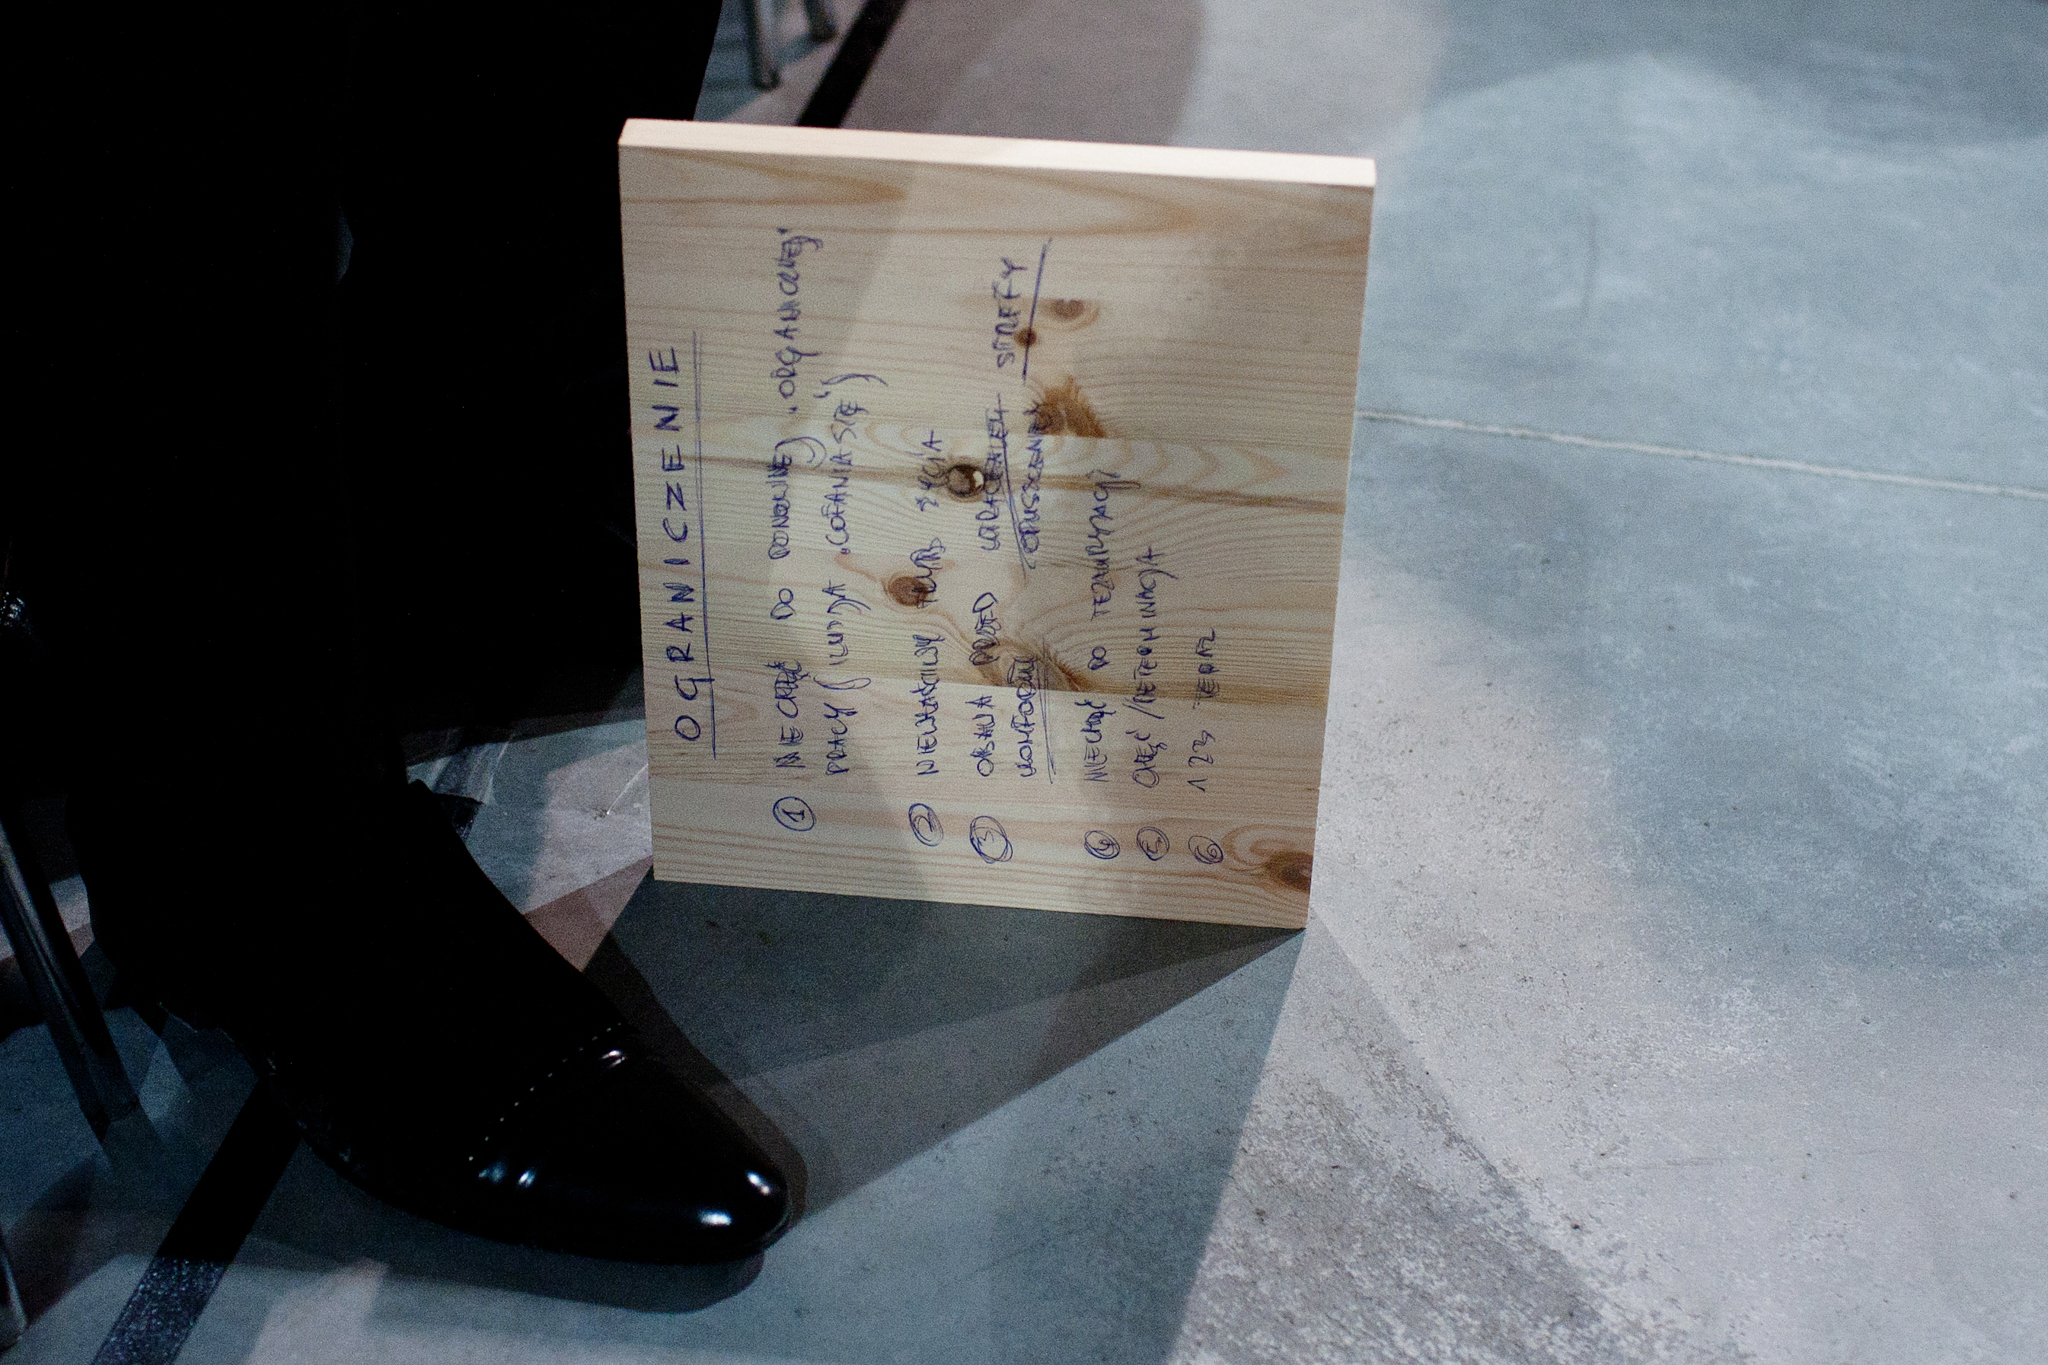 OGRANICZENIE
① NIECHĘĆ DO PONOWNEJ "ORGANICZNEJ"
PRACY (ILUZJA "COFANIA SIĘ")
② NIEWŁAŚCIWY TRYB ŻYCIA
③ OBAWA PRZED STREFY
KOMFORTU OPUSZCZENIEM
④ NIECHĘĆ DO
⑤ CHĘĆ / DETERMINACJA
⑥ 123 TERAZ